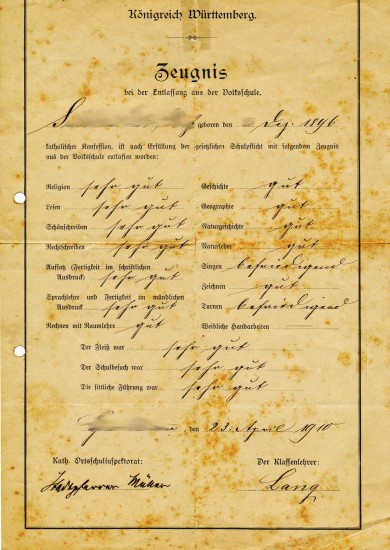 Königreich Württemberg.
Zeugnis
bei der Entlassung aus der Volksschule.
geboren den Dez. 1896
katholischer Konfession, ist nach Erfüllung der gesetzlichen Schulpflicht mit folgendem Zeugnis
aus der Volksschule entlassen worden:
Religion sehr gut Geschichte gut
Lesen sehr gut Geographie gut
Schönschreiben sehr gut Naturgeschichte gut
Rechtschreiben sehr gut Naturlehre gut
Aufsatz (Fertigkeit im schriftlichen Singen befriedigend
Ausdruck) sehr gut Zeichnen gut
Sprachlehre und Fertigkeit im mündlichen
Ausdruck sehr gut Turnen befriedigend
Rechnen mit Raumlehre gut Weibliche Handarbeiten
Der Fleiß war sehr gut
Der Schulbesuch war sehr gut
Die sittliche Führung war sehr gut
, den 23. April 1910.
Kath. Ortsschulinspektorat: Der Klassenlehrer:
Stadtpfarrer Müller Lang